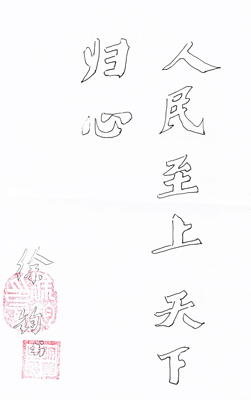 人民至上天下
归心
徐